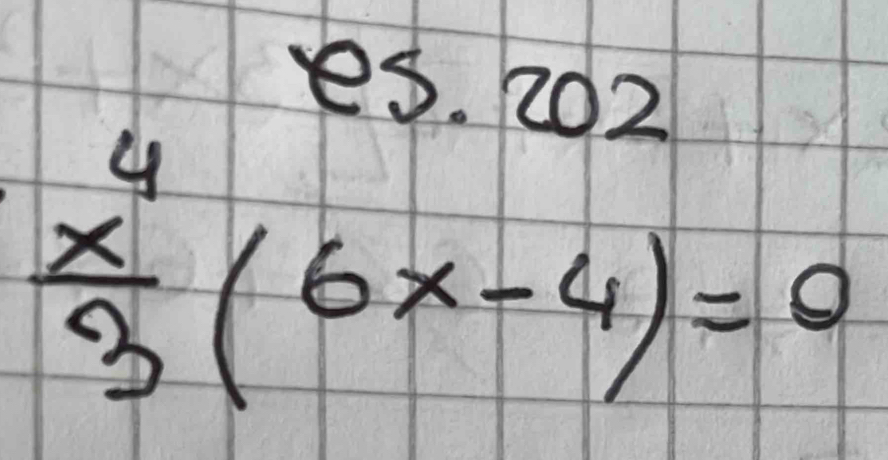 es. 202
x⁴/3 (6x-4) = 0